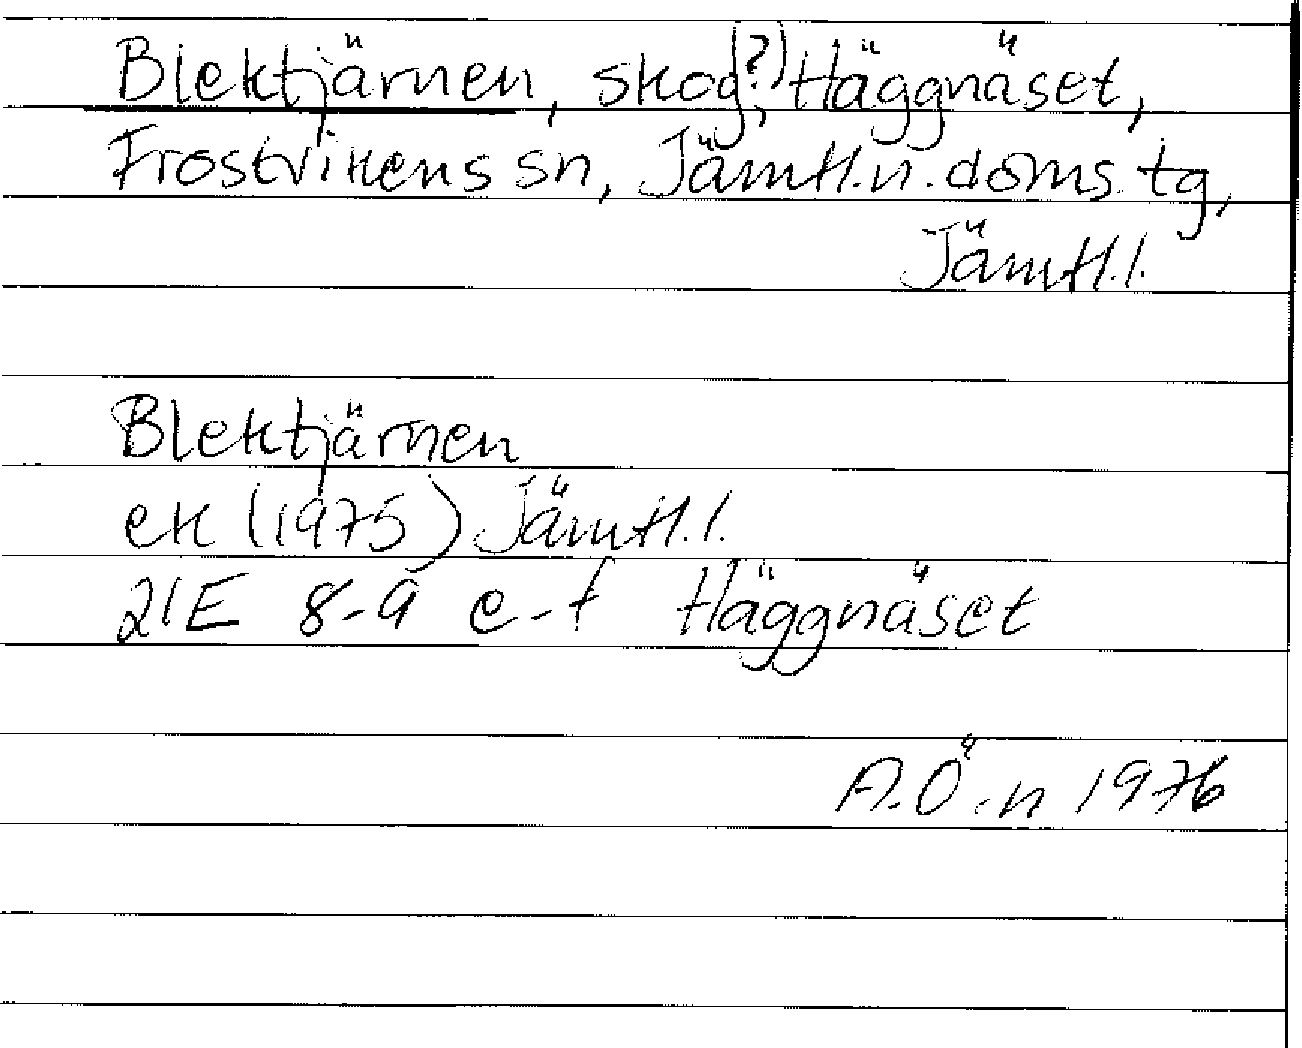 Blektjärnen, skog(?), Häggnäset,
Frostvikens sn, Jämtl.n.doms.tg,
Jämtl.l.
Blektjärnen
ek (1975) Jämtl.l.
21E 8-9 e-f Häggnäset
A.Ö-n 1976